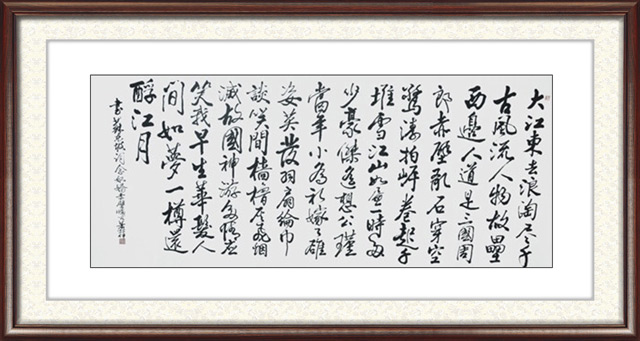 大江東去浪淘尽千
古風流人物故壘
西邊人道是三國周
郎赤壁乱石穿空
驚濤拍岸卷起千
堆雪江山如画一時多
少豪傑遙想公瑾
當年小喬初嫁了雄
姿英發羽扇綸巾
談笑間檣櫓灰飛烟
滅故國神游多情應
笑我早生華髮人
間如夢一樽還
酹江月
書蘇軾词念奴嬌赤壁懷古